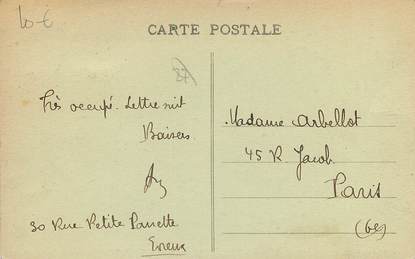 10 €
CARTE POSTALE
Très occupé. Lettre suit
Baisers
30 Rue Petite
Evreux
Madame Arbellot
45 R. Jacob
Paris
(6e)